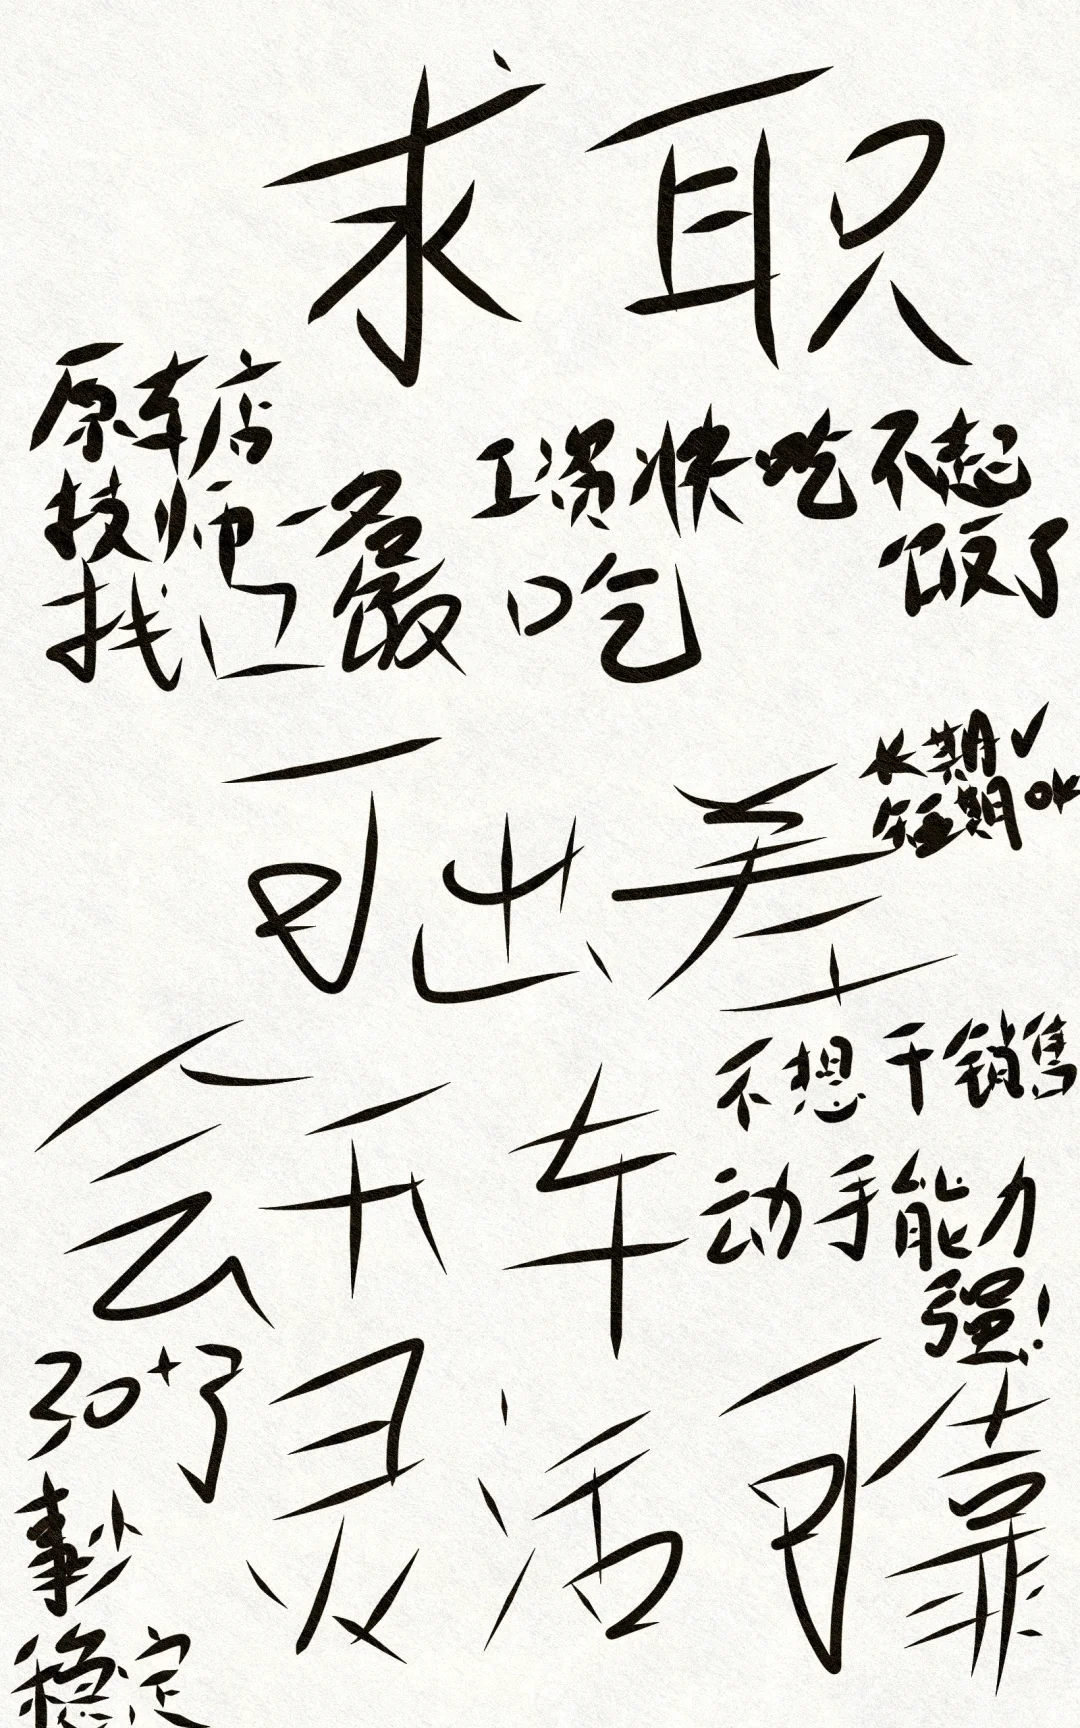 求职
原车店
技师一名
找口饭吃
工资快吃不起
饭了
可出差
长期✓
短期ok
会开车
不想干销售
动手能力
强!
30+了
事少
稳定
灵活可靠